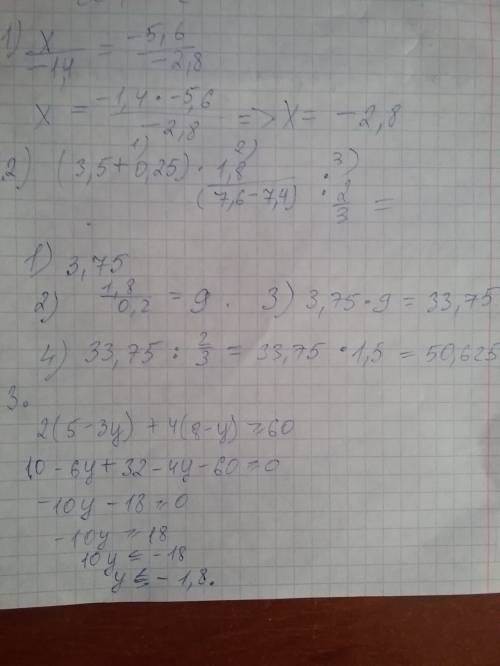 1) x/-1,4 = -5,6/-2,8
x = -1,4 · -5,6/-2,8 => x = -2,8
1) 2) 3)
2) (3,5+0,25) · 1,8/(7,6-7,4) : 2/3 =
1) 3,75
2) 1,8/0,2 = 9 . 3) 3,75 · 9 = 33,75
4) 33,75 : 2/3 = 33,75 · 1,5 = 50,625
3.
2(5-3y) + 4(8-y) ≥ 60
10 - 6y + 32 - 4y - 60 ≥ 0
-10y - 18 ≥ 0
-10y ≥ 18
10y ≤ -18
y ≤ -1,8.